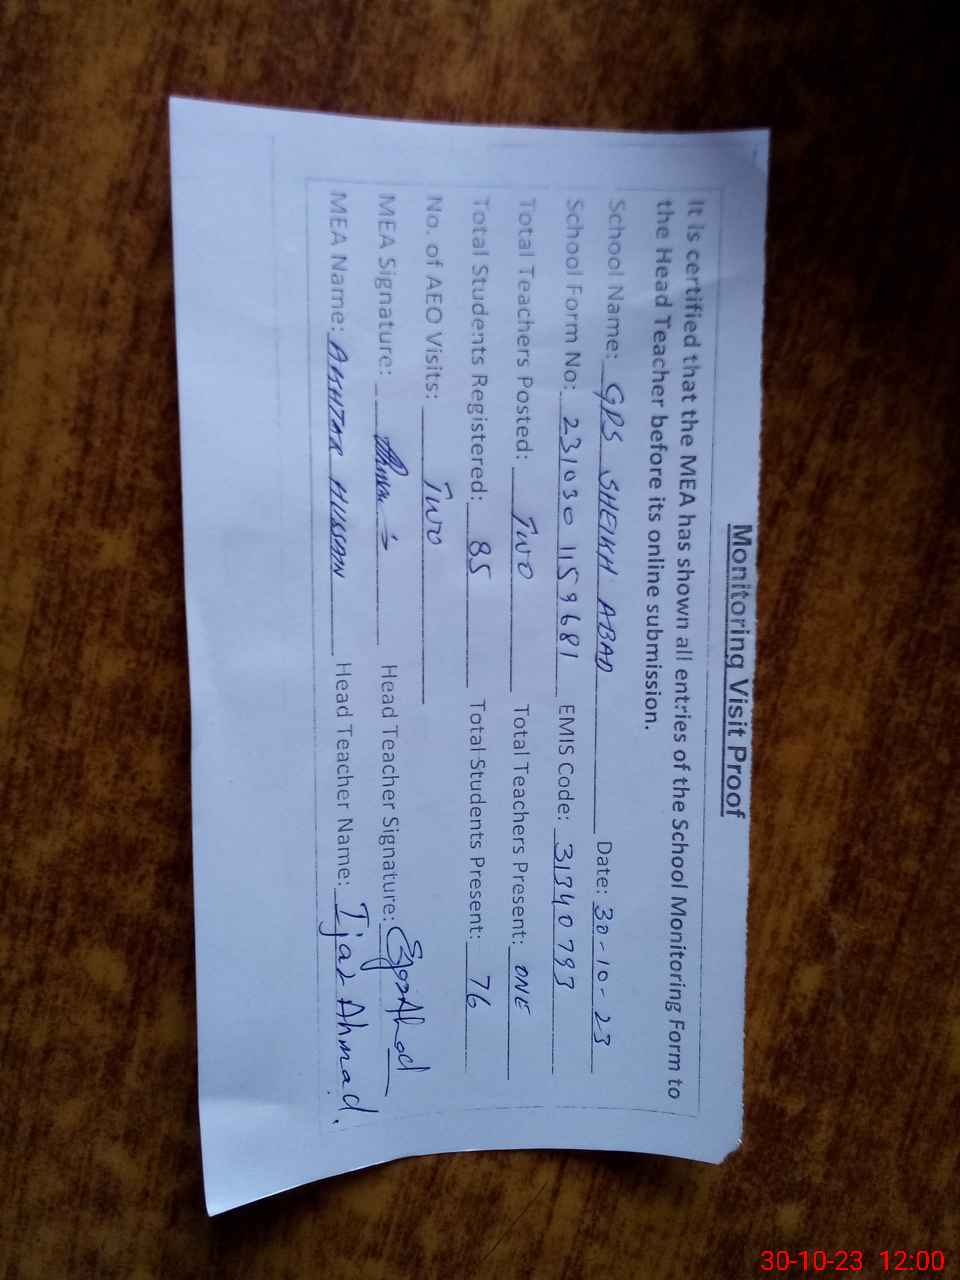 Monitoring Visit Proof
It is certified that the MEA has shown all entries of the School Monitoring Form to
the Head Teacher before its online submission.
School Name: GPS SHEIKH ABAD Date: 30-10-23
School Form No: 231030 1159681 EMIS Code: 31340793
Total Teachers Posted: Two Total Teachers Present: ONE
Total Students Registered: 85 Total Students Present: 76
No. of AEO Visits: Two
MEA Signature: Head Teacher Signature:
MEA Name: AKHTAR HUSSAIN Head Teacher Name: Ijaz Ahmad.
30-10-23 12:00